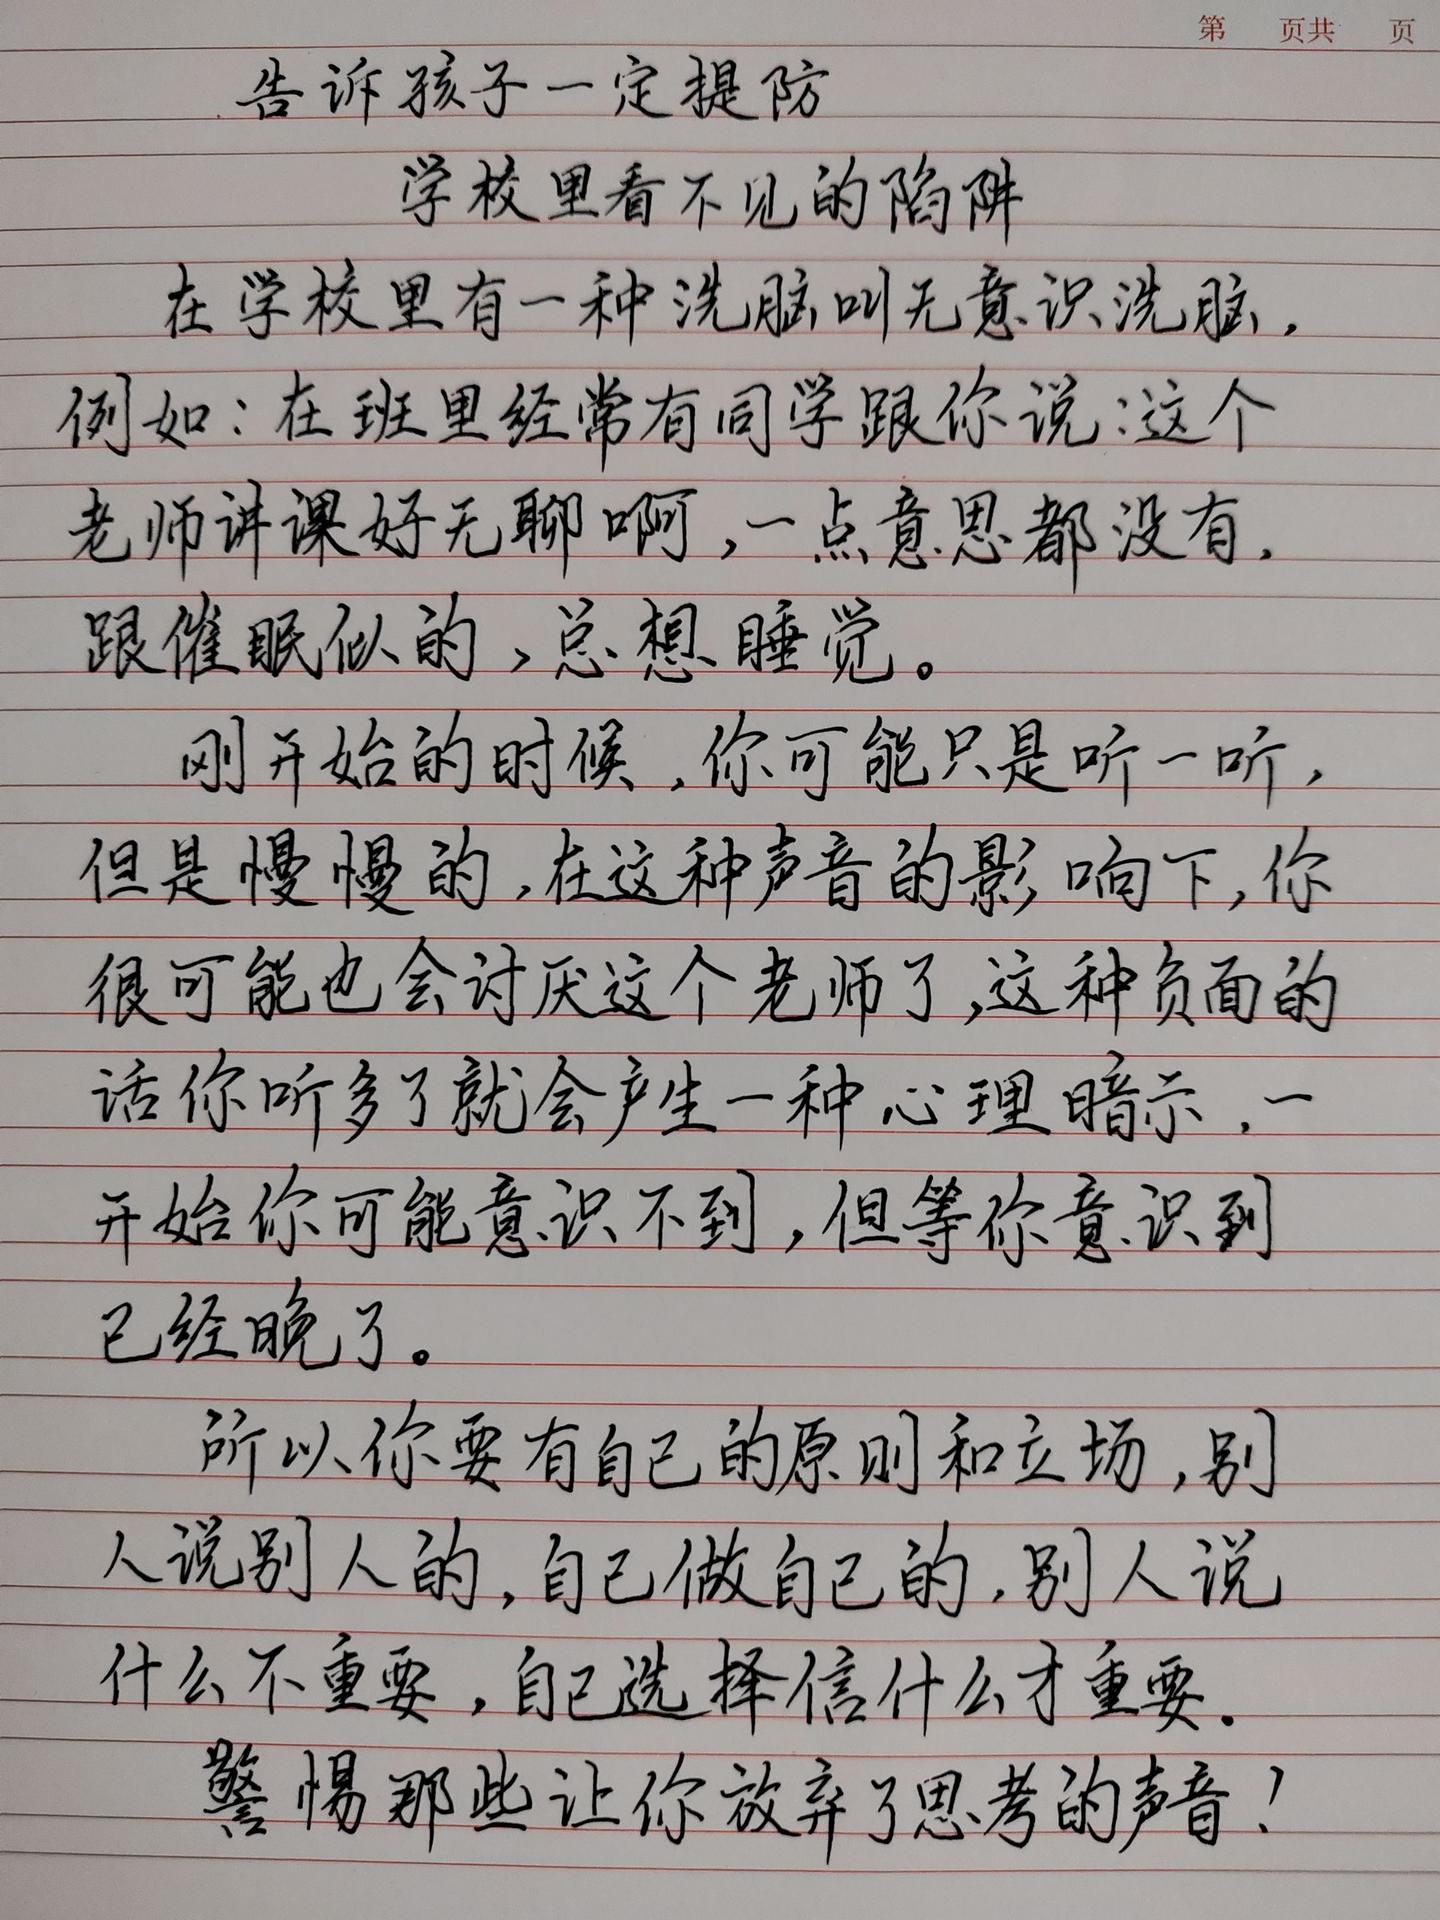 第 页共 页
告诉孩子一定提防
学校里看不见的陷阱
在学校里有一种洗脑叫无意识洗脑，
例如：在班里经常有同学跟你说：这个
老师讲课好无聊啊，一点意思都没有，
跟催眠似的，总想睡觉。
刚开始的时候，你可能只是听一听，
但是慢慢的，在这种声音的影响下，你
很可能也会讨厌这个老师了，这种负面的
话你听多了就会产生一种心理暗示，一
开始你可能意识不到，但等你意识到
已经晚了。
所以你要有自己的原则和立场，别
人说别人的，自己做自己的，别人说
什么不重要，自己选择信什么才重要。
警惕那些让你放弃了思考的声音！